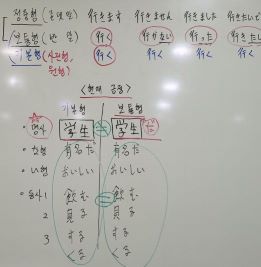 정중형 (존댓말) 行きます 行きません 行きました 行きたいです
보통형 (반말) 行く 行かない 行った 行きたい
기본형 (사전형, 원형) 行く 行く 行く 行く
<현재 긍정>
기본형 보통형
명사 学生 ≠ 学生だ
な형 有名だ 有名だ
い형 おいしい おいしい
동사1 飲む = 飲む
2 見る 見る
3 する する
くる くる